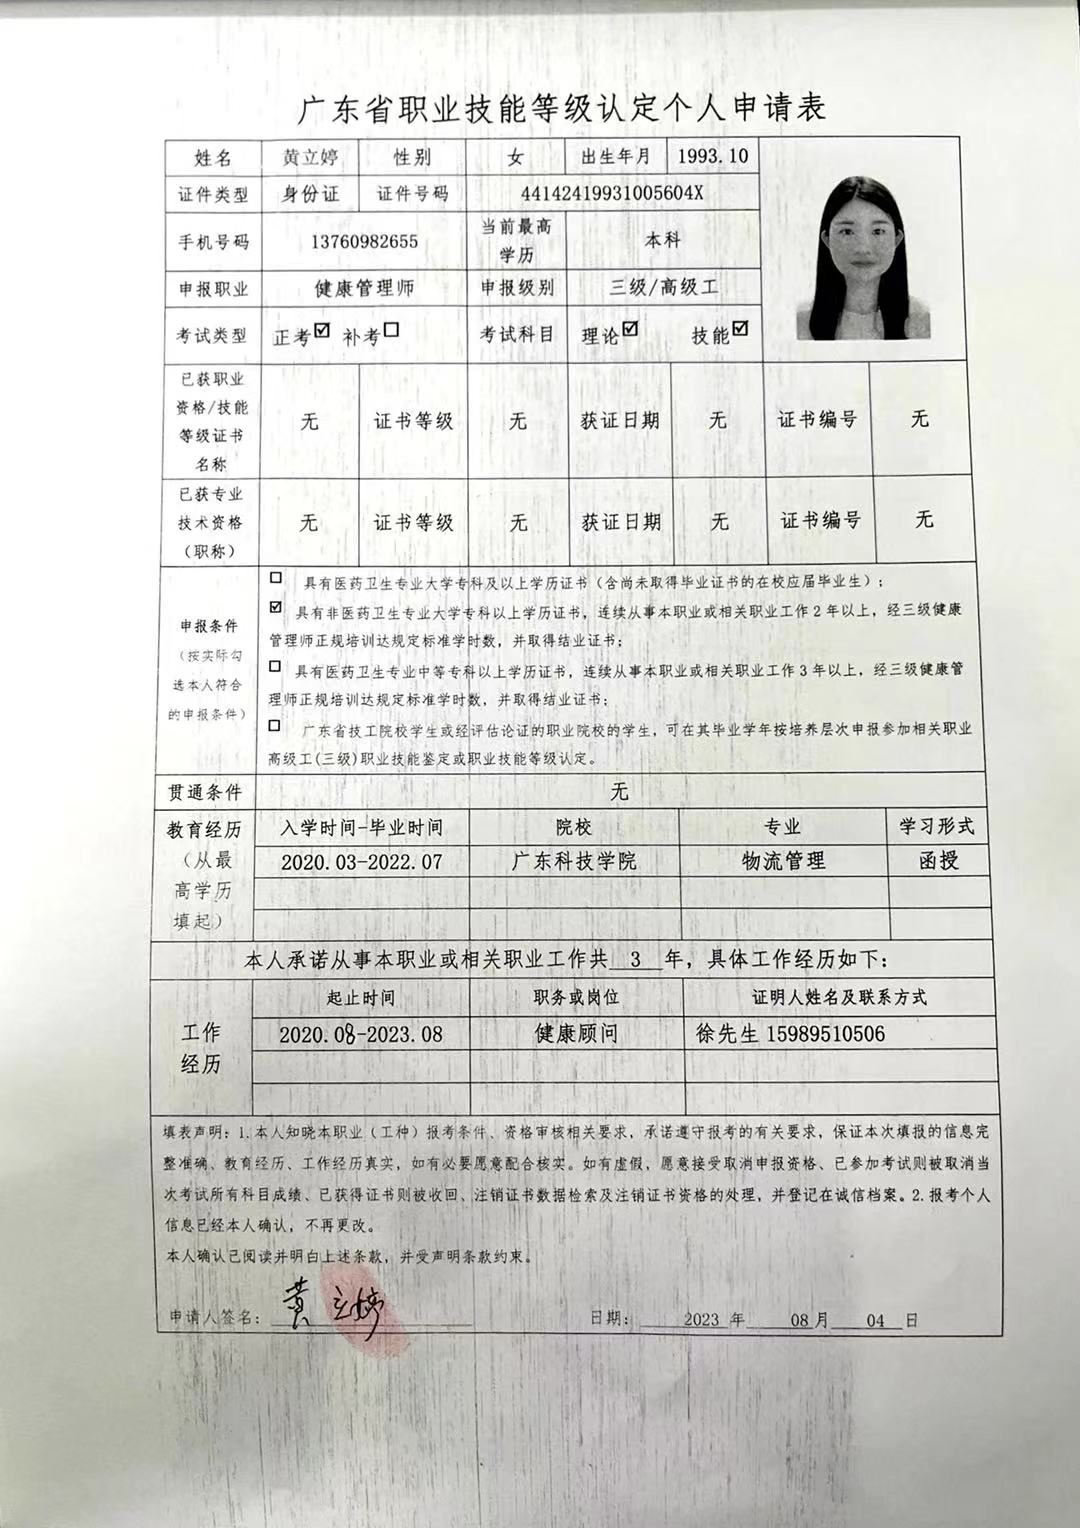 广东省职业技能等级认定个人申请表
姓名 黄立婷 性别 女 出生年月 1993.10
证件类型 身份证 证件号码 44142419931005604X
手机号码 13760982655 当前最高学历 本科
申报职业 健康管理师 申报级别 三级/高级工
考试类型 正考☑ 补考☐ 考试科目 理论☑ 技能☑
已获职业
资格/技能
等级证书
名称
无 证书等级 无 获证日期 无 证书编号 无
已获专业
技术资格
（职称）
无 证书等级 无 获证日期 无 证书编号 无
申报条件
（按实际勾
选本人符合
的申报条件）
☐ 具有医药卫生专业大学专科及以上学历证书（含尚未取得毕业证书的在校应届毕业生）；
☑ 具有非医药卫生专业大学专科以上学历证书，连续从事本职业或相关职业工作2年以上，经三级健康
管理师正规培训达规定标准学时数，并取得结业证书；
☐ 具有医药卫生专业中等专科以上学历证书，连续从事本职业或相关职业工作3年以上，经三级健康管
理师正规培训达规定标准学时数，并取得结业证书；
☐ 广东省技工院校学生或经评估论证的职业院校的学生，可在其毕业学年按培养层次申报参加相关职业
高级工(三级)职业技能鉴定或职业技能等级认定。
贯通条件 无
教育经历
（从最
高学历
填起）
入学时间-毕业时间 院校 专业 学习形式
2020.03-2022.07 广东科技学院 物流管理 函授
本人承诺从事本职业或相关职业工作共 3 年，具体工作经历如下：
工作
经历
起止时间 职务或岗位 证明人姓名及联系方式
2020.08-2023.08 健康顾问 徐先生 15989510506
填表声明：1.本人知晓本职业（工种）报考条件、资格审核相关要求，承诺遵守报考的有关要求，保证本次填报的信息完
整准确、教育经历、工作经历真实，如有必要愿意配合核实。如有虚假，愿意接受取消申报资格、已参加考试则被取消当
次考试所有科目成绩、已获得证书则被收回、注销证书数据检索及注销证书资格的处理，并登记在诚信档案。2.报考个人
信息已经本人确认，不再更改。
本人确认已阅读并明白上述条款，并受声明条款约束。
申请人签名： 黄立婷 日期： 2023 年 08 月 04 日